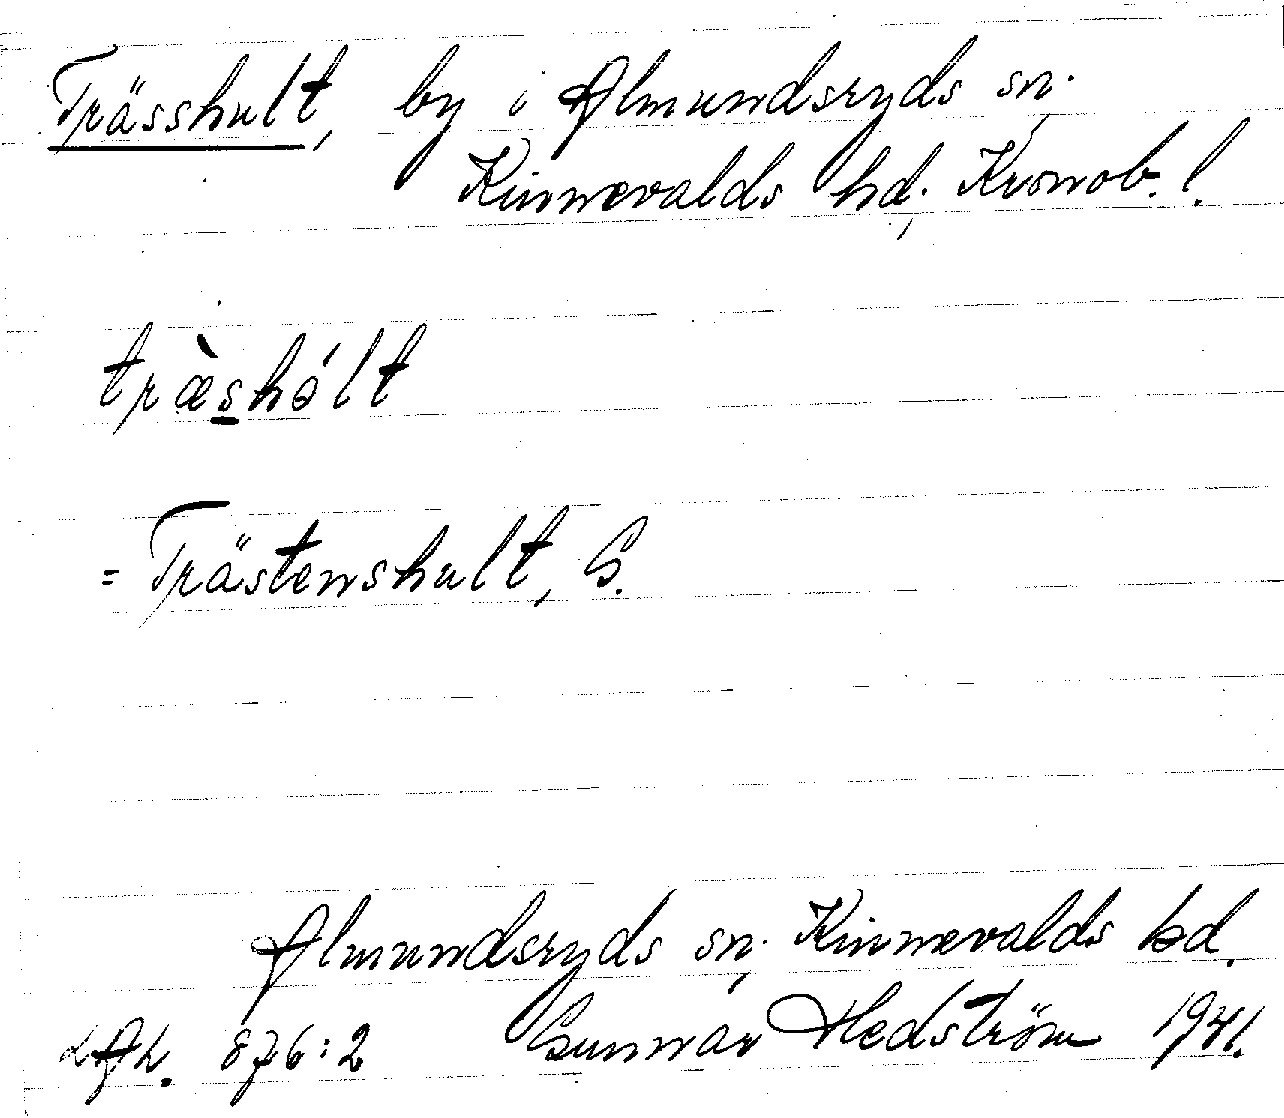 Trässhult, by i Almundsryds sn.
Kinnevalds hd, Kronob. l.
træ̀shólt
= Trästenshult, G.
Almundsryds sn, Kinnevalds hd.
876:2 Gunnar Hedström 1941.